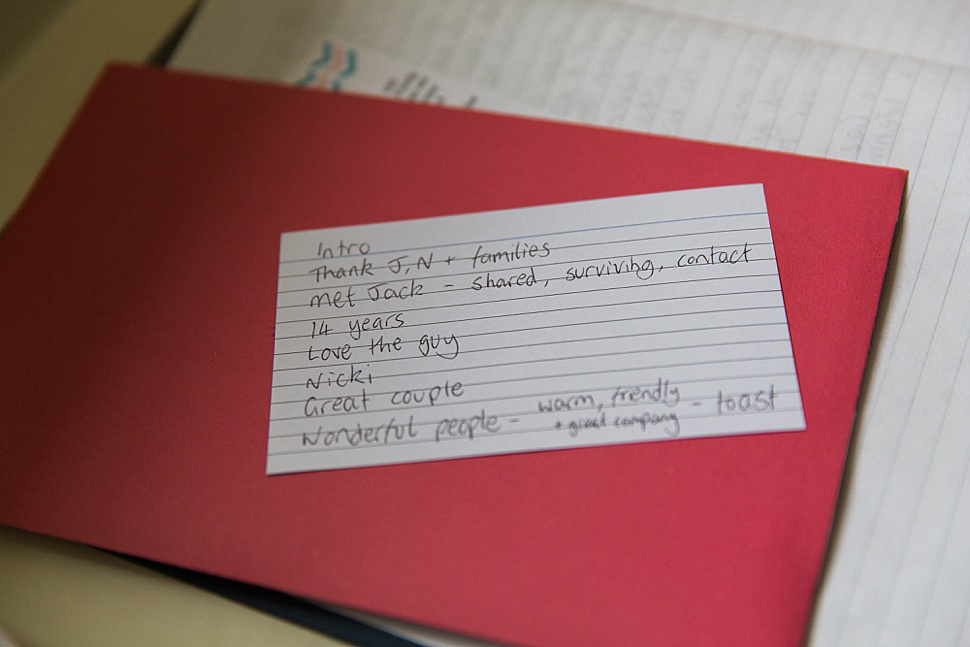 Intro
Thank J, N + families
met Jack - shared, surviving, contact
14 years
Love the guy
Nicki
Great couple
Wonderful people - warm, frendly - toast
+ great company